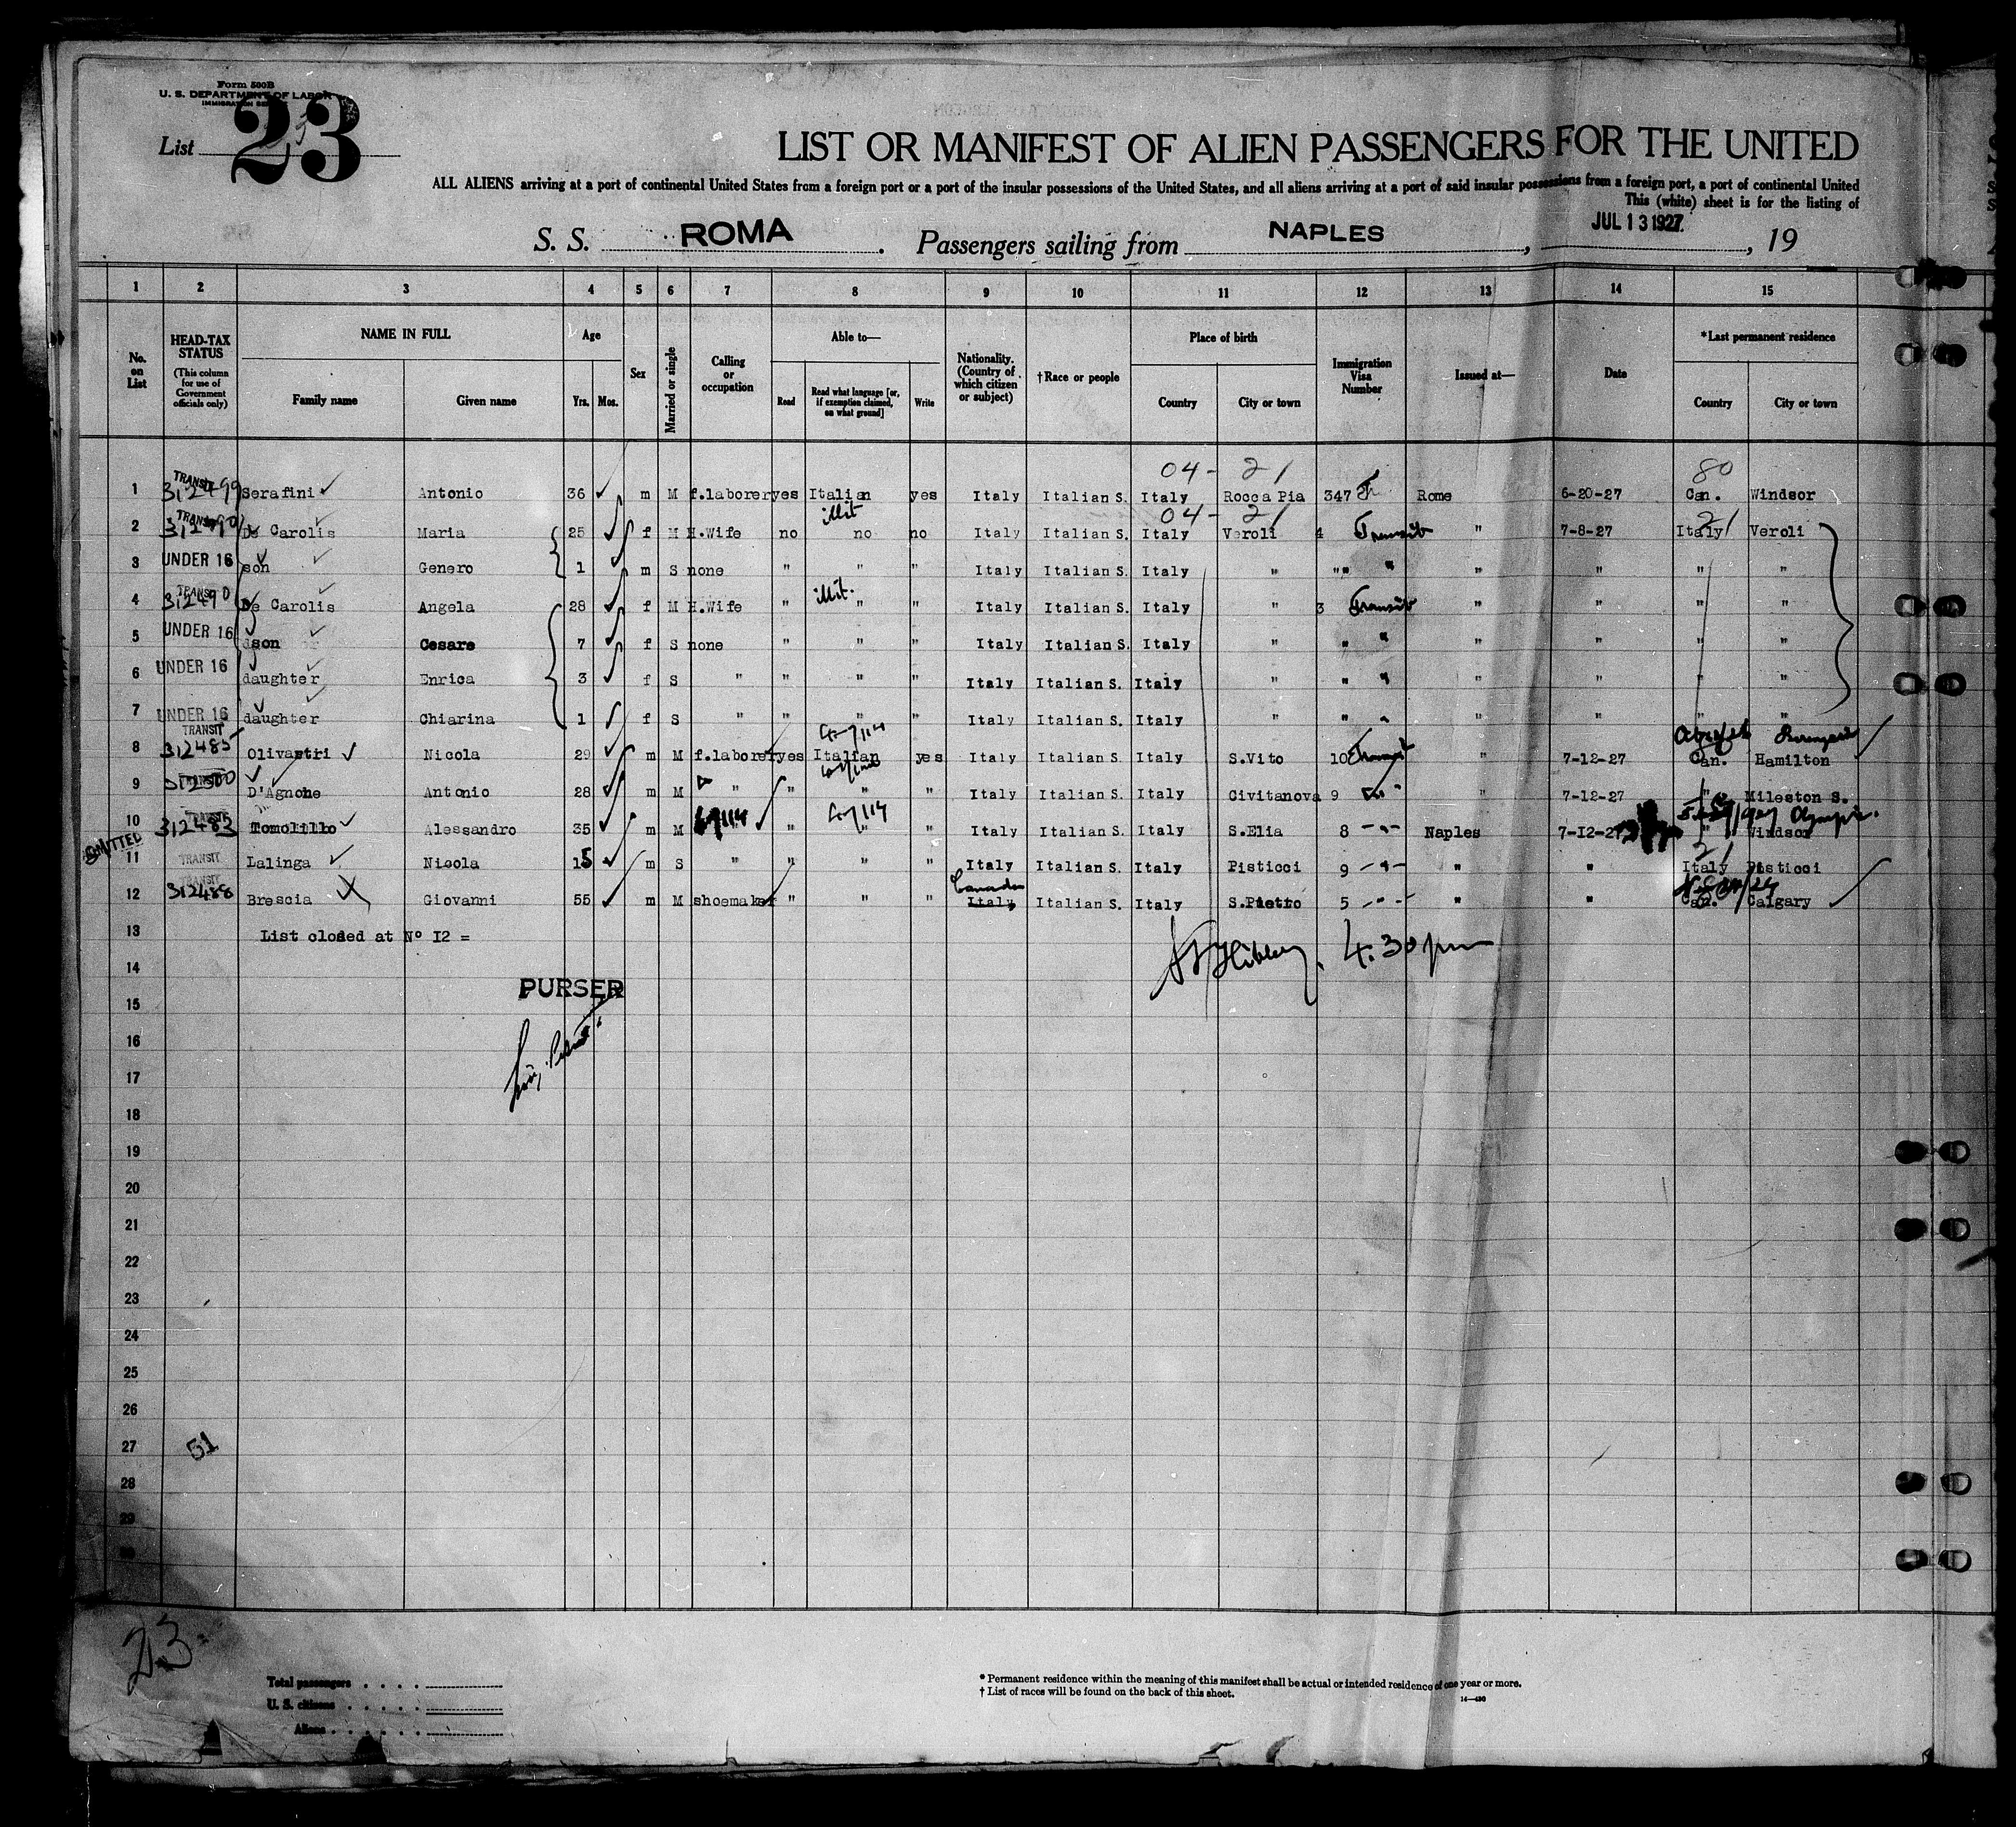 Form 500B
U. S. DEPARTMENT OF LABOR
IMMIGRATION
List 23
LIST OR MANIFEST OF ALIEN PASSENGERS FOR THE UNITED
ALL ALIENS arriving at a port of continental United States from a foreign port or a port of the insular possessions of the United States, and all aliens arriving at a port of said insular possessions from a foreign port, a port of continental United
This (white) sheet is for the listing of
S. S. ROMA. Passengers sailing from NAPLES, JUL 13 1927, 19
1 2 3 4 5 6 7 8 9 10 11 12 13 14 15
No. on List
HEAD-TAX STATUS (This column for use of Government officials only)
NAME IN FULL Family name Given name
Age Yrs. Mos.
Sex
Married or single
Calling or occupation
Able to— Read Read what language [or, if exemption claimed, on what ground] Write
Nationality. (Country of which citizen or subject)
†Race or people
Place of birth Country City or town
Immigration Visa Number
Issued at—
Date
*Last permanent residence Country City or town
04- 21 80
1 TRANSIT 312499 Serafini Antonio 36 m M f.laborer yes Italian yes Italy Italian S. Italy Rocca Pia 347 Rome 6-20-27 Can. Windsor
illit 04- 21 21
2 TRANSIT De Carolis Maria 25 f M H.Wife no no no Italy Italian S. Italy Veroli 4 Transit " 7-8-27 Italy Veroli
3 UNDER 16 son Genero 1 m S none " " " Italy Italian S. Italy " " " " " " "
illit.
4 TRANSIT De Carolis Angela 28 f M H.Wife " " " Italy Italian S. Italy " 3 Transit " " " "
5 UNDER 16 son Cesare 7 f S none " " " Italy Italian S. Italy " " " " " " "
6 UNDER 16 daughter Enrica 3 f S " " " " Italy Italian S. Italy " " " " " " "
7 UNDER 16 daughter Chiarina 1 f S " " " " Italy Italian S. Italy " " " " " " "
8 TRANSIT 312485 Olivastri Nicola 29 m M f.laborer yes Italian yes Italy Italian S. Italy S.Vito 10 Transit " 7-12-27 Can. Hamilton
9 TRANSIT 312500 D'Agnone Antonio 28 m M " " " Italy Italian S. Italy Civitanova 9 " " 7-12-27 " Mileston S.
Olympic.
10 TRANSIT 312483 Tomolillo Alessandro 35 m M " " " " Italy Italian S. Italy S.Elia 8 -"- Naples 7-12-27 " Windsor
ADMITTED 21
11 TRANSIT Lalinga Nicola 15 m S " " " " Italy Italian S. Italy Pisticci 9 -"- " " Italy Pisticci
Canada
12 TRANSIT 312488 Brescia Giovanni 55 m M shoemaker " " " Italy Italian S. Italy S.Pietro 5 -"- " " Can. Calgary
13 List closed at N° I2 =
4.30 pm
14
PURSER
15
16
17
18
19
20
21
22
23
24
25
26
27 51
28
29
30
23
Total passengers
U. S. citizens
Aliens
* Permanent residence within the meaning of this manifest shall be actual or intended residence of one year or more.
† List of races will be found on the back of this sheet.
14—430